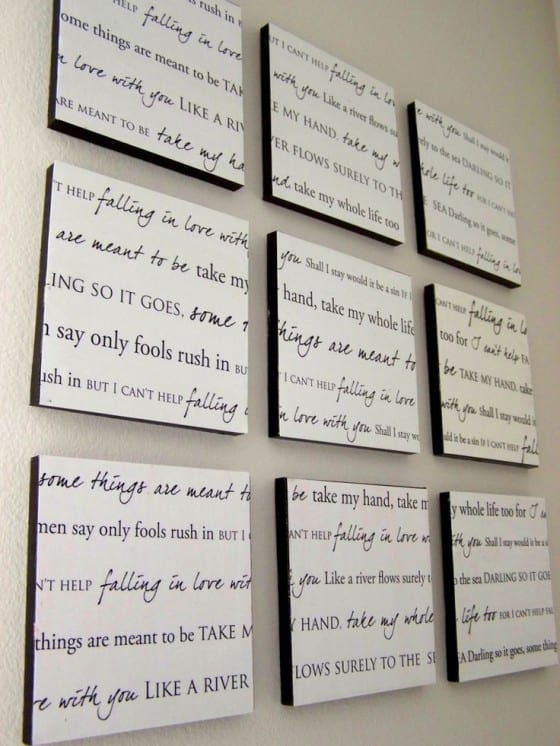 HELP falling in love
ome things are meant to be TAK
n love with you LIKE A RIV
ARE MEANT TO BE take my ha
UT I CAN'T HELP falling in lov
with you Like a river flows su
E MY HAND, take my w
ER FLOWS SURELY TO TH
nd, take my whole life too
e with you Shall I stay would it
ely to the sea DARLING SO IT
hole life too FOR I CAN'T
SEA Darling so it goes, some
OR I CAN'T HELP falling in lo
'T HELP falling in love with
are meant to be take my
ING SO IT GOES, some t
n say only fools rush in BUT
ush in BUT I CAN'T HELP falling
you Shall I stay would it be a sin IF I
hand, take my whole life
things are meant to
I CAN'T HELP falling in love
n love with you Shall I stay wo
CAN'T HELP falling in lo
too for I can't help FA
be TAKE MY HAND, take
with you Shall I stay would it
uld it be a sin IF I CAN'T HELP fall
some things are meant t
men say only fools rush in BUT I
N'T HELP falling in love wit
things are meant to be TAKE M
e with you LIKE A RIVER
be take my hand, take m
AN'T HELP falling in love w
you Like a river flows surely t
HAND, take my whole
LOWS SURELY TO THE SE
y whole life too for I
th you Shall I stay would it be a s
o the sea DARLING SO IT GOE
life too FOR I CAN'T HELP FAL
EA Darling so it goes, some thing